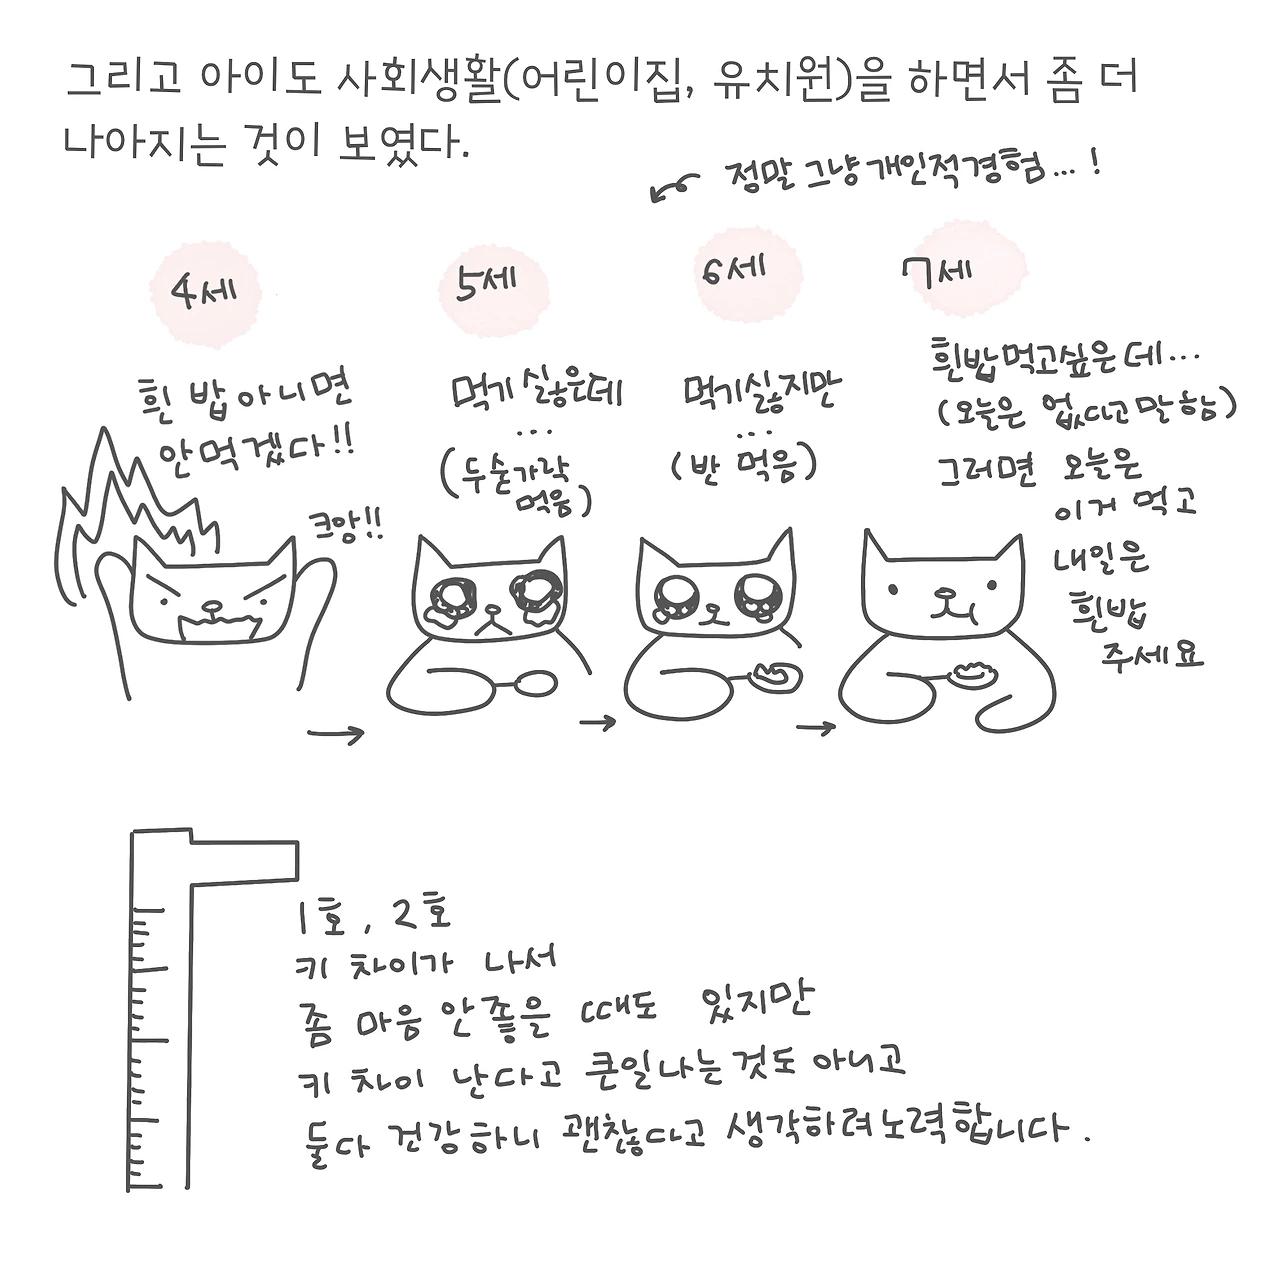 그리고 아이도 사회생활(어린이집, 유치원)을 하면서 좀 더
나아지는 것이 보였다.
정말 그냥 개인적경험... !
4세
흰 밥 아니면
안먹겠다!!
크앙!!
5세
먹기 싫은데
...
(두숟가락
먹음)
6세
먹기싫지만
...
(반 먹음)
7세
흰밥먹고싶은데...
(오늘은 없다고말함)
그러면 오늘은
이거 먹고
내일은
흰밥
주세요
1호, 2호
키 차이가 나서
좀 마음 안좋을 때도 있지만
키 차이 난다고 큰일나는것도 아니고
둘다 건강하니 괜찮다고 생각하려노력합니다.